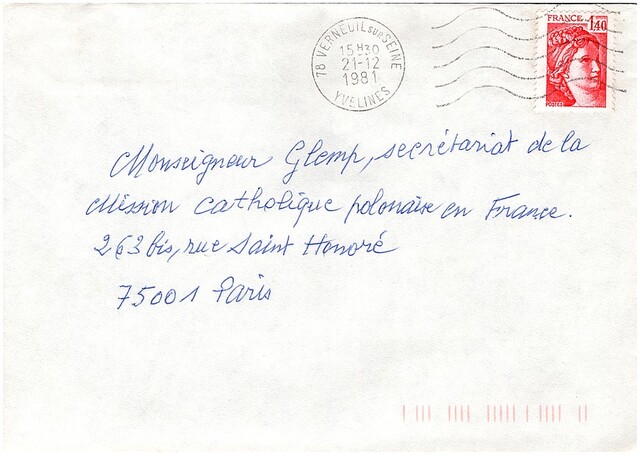 78 VERNEUIL sur SEINE
15 H30
21-12
1981
YVELINES
FRANCE 1,40
POSTES
Monseigneur Glemp, secrétariat de la
Mission catholique polonaise en France.
263 bis, rue Saint Honoré
75001 Paris